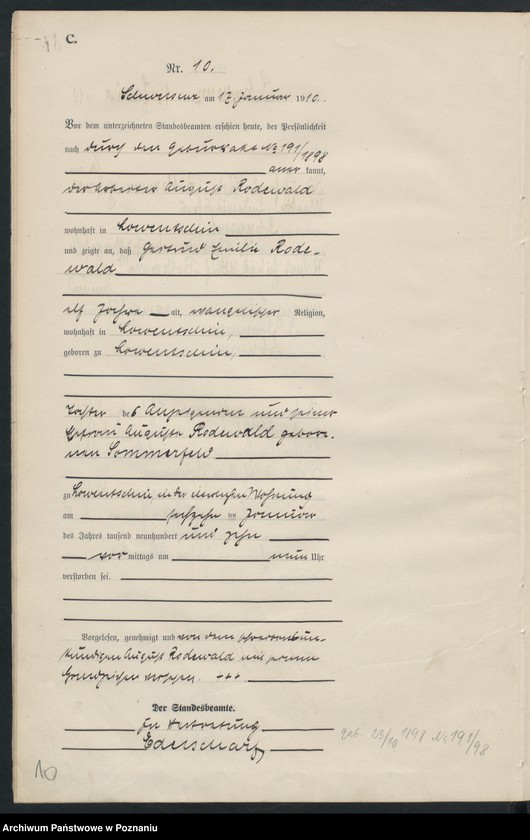 C.
Nr. 10.
Schwersenz am 17. Januar 1910.
Vor dem unterzeichneten Standesbeamten erschien heute, der Persönlichkeit
nach durch den Geburtsakt No 191/1898
aner kannt,
der Arbeiter August Rodewald
wohnhaft in Lowentschin
und zeigte an, daß Gertrud Emilie Rode-
wald
elf Jahre alt, evangelischer Religion,
wohnhaft in Lowentschin,
geboren zu Lowentschin,
Tochter des Anzeigenden und seiner
Ehefrau Auguste Rodewald gebore-
nen Sommerfeld
zu Lowentschin in der Wohnung
am sechzehn ten Januar
des Jahres tausend neunhundert und zehn
vor mittags um neun Uhr
verstorben sei.
Vorgelesen, genehmigt und von dem schreibensun-
kundigen August Rodewald mit seinem
Handzeichen versehen. +++
Der Standesbeamte.
In Vertretung
geb. 23/10 1898 No 191/98
10
Archiwum Państwowe w Poznaniu